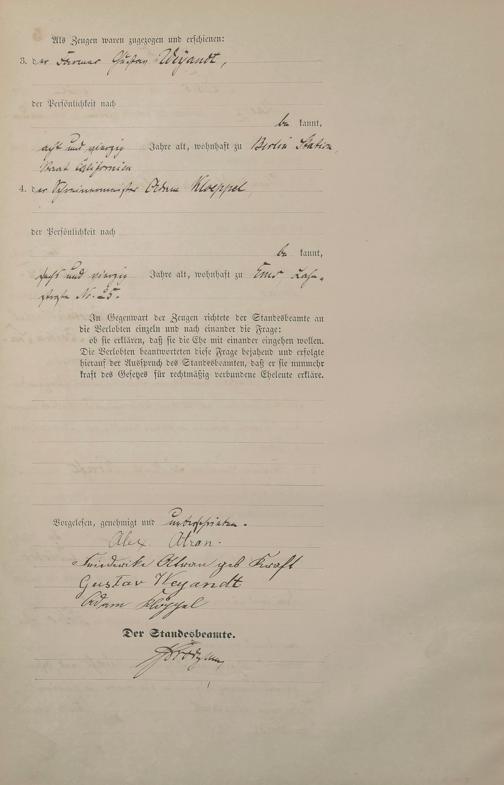 Als Zeugen waren zugezogen und erschienen:
3. der Farmer Gustav Weyandt,
der Persönlichkeit nach
be kannt,
acht und vierzig Jahre alt, wohnhaft zu Berlin Station,
Staat Californien
4. der Schreinermeister Adam Kloeppel
der Persönlichkeit nach
be kannt,
sechs und vierzig Jahre alt, wohnhaft zu Ems, Lahn-
straße Nr. 25.
In Gegenwart der Zeugen richtete der Standesbeamte an
die Verlobten einzeln und nach einander die Frage:
ob sie erklären, daß sie die Ehe mit einander eingehen wollen.
Die Verlobten beantworteten diese Frage bejahend und erfolgte
hierauf der Ausspruch des Standesbeamten, daß er sie nunmehr
kraft des Gesetzes für rechtmäßig verbundene Eheleute erkläre.
Vorgelesen, genehmigt und unterschrieben.
Alex. Atran.
Friederike Atran geb Kraft
Gustav Weyandt
Adam Klöppel
Der Standesbeamte.